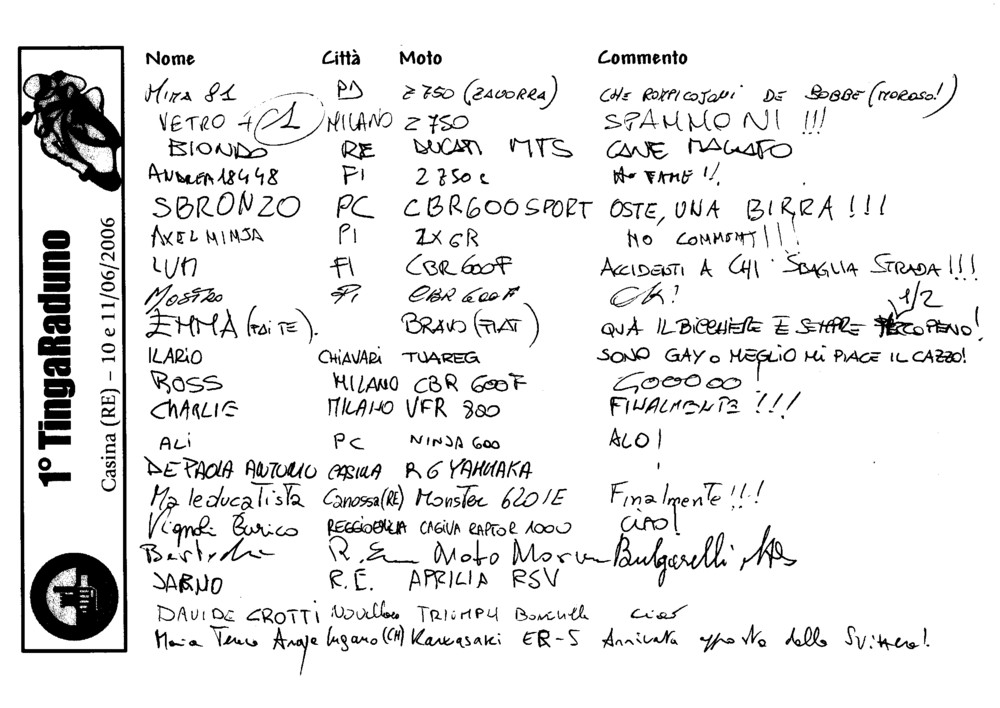 1° TingaRaduno
Casina (RE) – 10 e 11/06/2006
Nome Città Moto Commento
MIMA 81 PD Z 750 (ZAVORRA) CHE ROMPICOJONI DE BOBBE (MOROSO!)
VETRO 41 MILANO Z 750 SPAMMONI !!!
BIONDO RE DUCATI MTS CANE MALATO
ANDREA18448 FI Z 750 HO FAME !!
SBRONZO PC CBR600SPORT OSTE, UNA BIRRA !!!
AXELNINJA PI ZX6R NO COMMENT!!!
FI CBR 600F ACCIDENTI A CHI SBAGLIA STRADA !!!
MOSTRO PI CBR 600F OK!
EMMA BRAVO (FIAT) QUA IL BICCHIERE È SEMPRE 1/2 PIENO!
ILARIO CHIAVARI TUAREG SONO GAY o MEGLIO MI PIACE IL CAZZO!
ROSS MILANO CBR 600F GOOOOO!
CHARLIE MILANO VFR 800 FINALMENTE !!!
ALI PC NINJA 600 ALO!
DE PAOLA ANTONIO CASINA R6 YAMAKA
Maleducatista Canossa(RE) Monster 620IE Finalmente!!!
Vignoli Enrico REGGIO EMILIA CAGIVA RAPTOR 1000 CIAO!
R.E. Moto Morini Bulgarelli
JARNO R.E. APRILIA RSV
DAVIDE CROTTI Novellara TRIUMPH Bonneville ciao
Maria Lugano (CH) Kawasaki ER-5 Arrivata apposta dalla Svizzera!